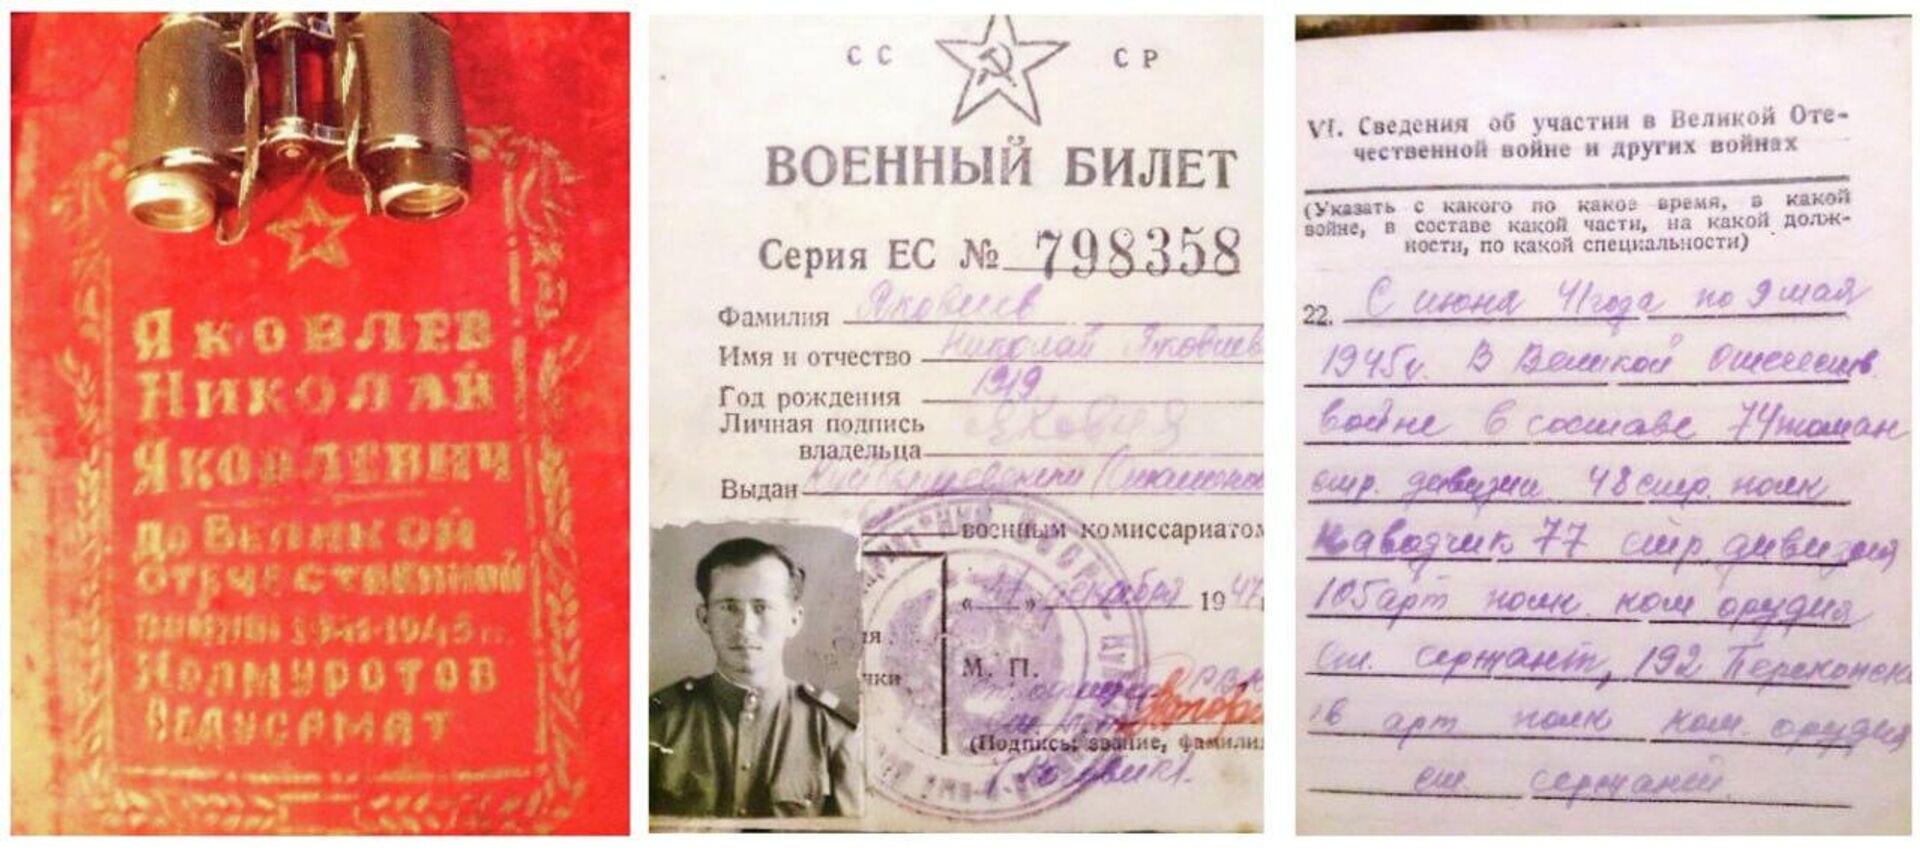 Яковлев
Николай
Яковлевич
до Великой
Отечественной
войны 1941-1945 г.
Холмуротов
Абдусамат
СС СР
ВОЕННЫЙ БИЛЕТ
Серия ЕС № 798358
Фамилия Яковлев
Имя и отчество Николай Яковлев
Год рождения 1919
Личная подпись
владельца
Выдан
военным комиссариатом
« » декабря 1947
М. П.
(Подпись, звание, фамилия
VI. Сведения об участии в Великой Оте-
чественной войне и других войнах
(Указать с какого по какое время, в какой
войне, в составе какой части, на какой долж-
ности, по какой специальности)
22. С июня 41 года по 9 мая
1945г. В Великой Отечеств.
войне в составе 74
стр. дивизии 48 стр. полк
наводчик 77 стр дивизия
105 арт полк. ком орудия
ст. сержант, 192 Перекопск
арт полк ком. орудия
ст. сержант.